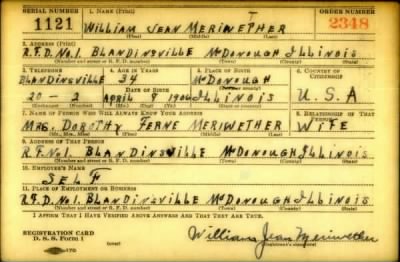 SERIAL NUMBER 1. NAME (Print) ORDER NUMBER
1121 WILLIAM JEAN MERIWETHER 2348
(First) (Middle) (Last)
2. ADDRESS (Print)
R.F.D. No1. BLANDINSVILLE McDONOUGH ILLINOIS
(Number and street or R. F. D. number) (Town) (County) (State)
3. TELEPHONE 4. AGE IN YEARS 5. PLACE OF BIRTH 6. COUNTRY OF CITIZENSHIP
BLANDINSVILLE 34 McDONOUGH
DATE OF BIRTH (Town or county)
20 - 2 APRIL 1906 ILLINOIS U.S.A
(Exchange) (Number) (Mo.) (Day) (Yr.) (State or country)
7. NAME OF PERSON WHO WILL ALWAYS KNOW YOUR ADDRESS 8. RELATIONSHIP OF THAT PERSON
MRS. DOROTHY FERNE MERIWETHER WIFE
(Mr., Mrs., Miss) (First) (Middle) (Last)
9. ADDRESS OF THAT PERSON
R.F. No1. BLANDINSVILLE McDONOUGH ILLINOIS
(Number and street or R. F. D. number) (Town) (County) (State)
10. EMPLOYER'S NAME
SELF
11. PLACE OF EMPLOYMENT OR BUSINESS
R.F.D. No1. BLANDINSVILLE McDONOUGH ILLINOIS
(Number and street or R. F. D. number) (Town) (County) (State)
I AFFIRM THAT I HAVE VERIFIED ABOVE ANSWERS AND THAT THEY ARE TRUE.
REGISTRATION CARD
D. S. S. Form 1 (over) William Jean Meriwether
(Registrant's signature)